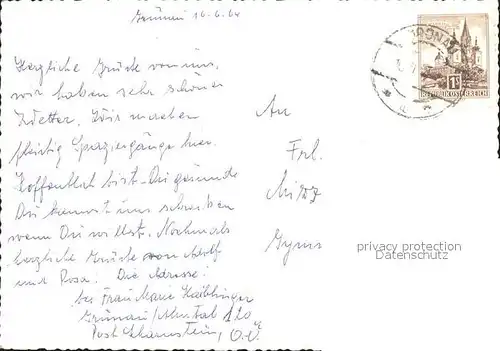 Grünau 16.6.64
Herzliche Grüße von uns,
wir haben sehr schönes
Wetter. Wir machen
fleißig Spaziergänge hier.
Hoffentlich bist Du gesund
Du kannst uns schreiben
wenn Du willst. Nochmals
herzliche Grüße von Adolf
und Rosa. Die Adresse:
bei Frau Marie Haiblinger
Grünau/Almtal 120
Post Scharnstein, O.Ö.
An
Frl.
GRÜNAU
1S
REPUBLIK ÖSTERREICH
privacy protection
Datenschutz